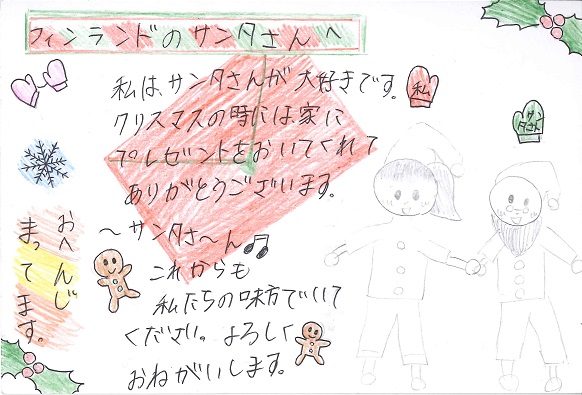 フィンランドのサンタさんへ
私は、サンタさんが大好きです。
クリスマスの時には家に
プレゼントをおいてくれて
ありがとうございます。
〜サンタさ〜ん♫
これからも
私たちの味方でいて
ください。よろしく
おねがいします。
おへんじ
まってます。
私
サンタさん